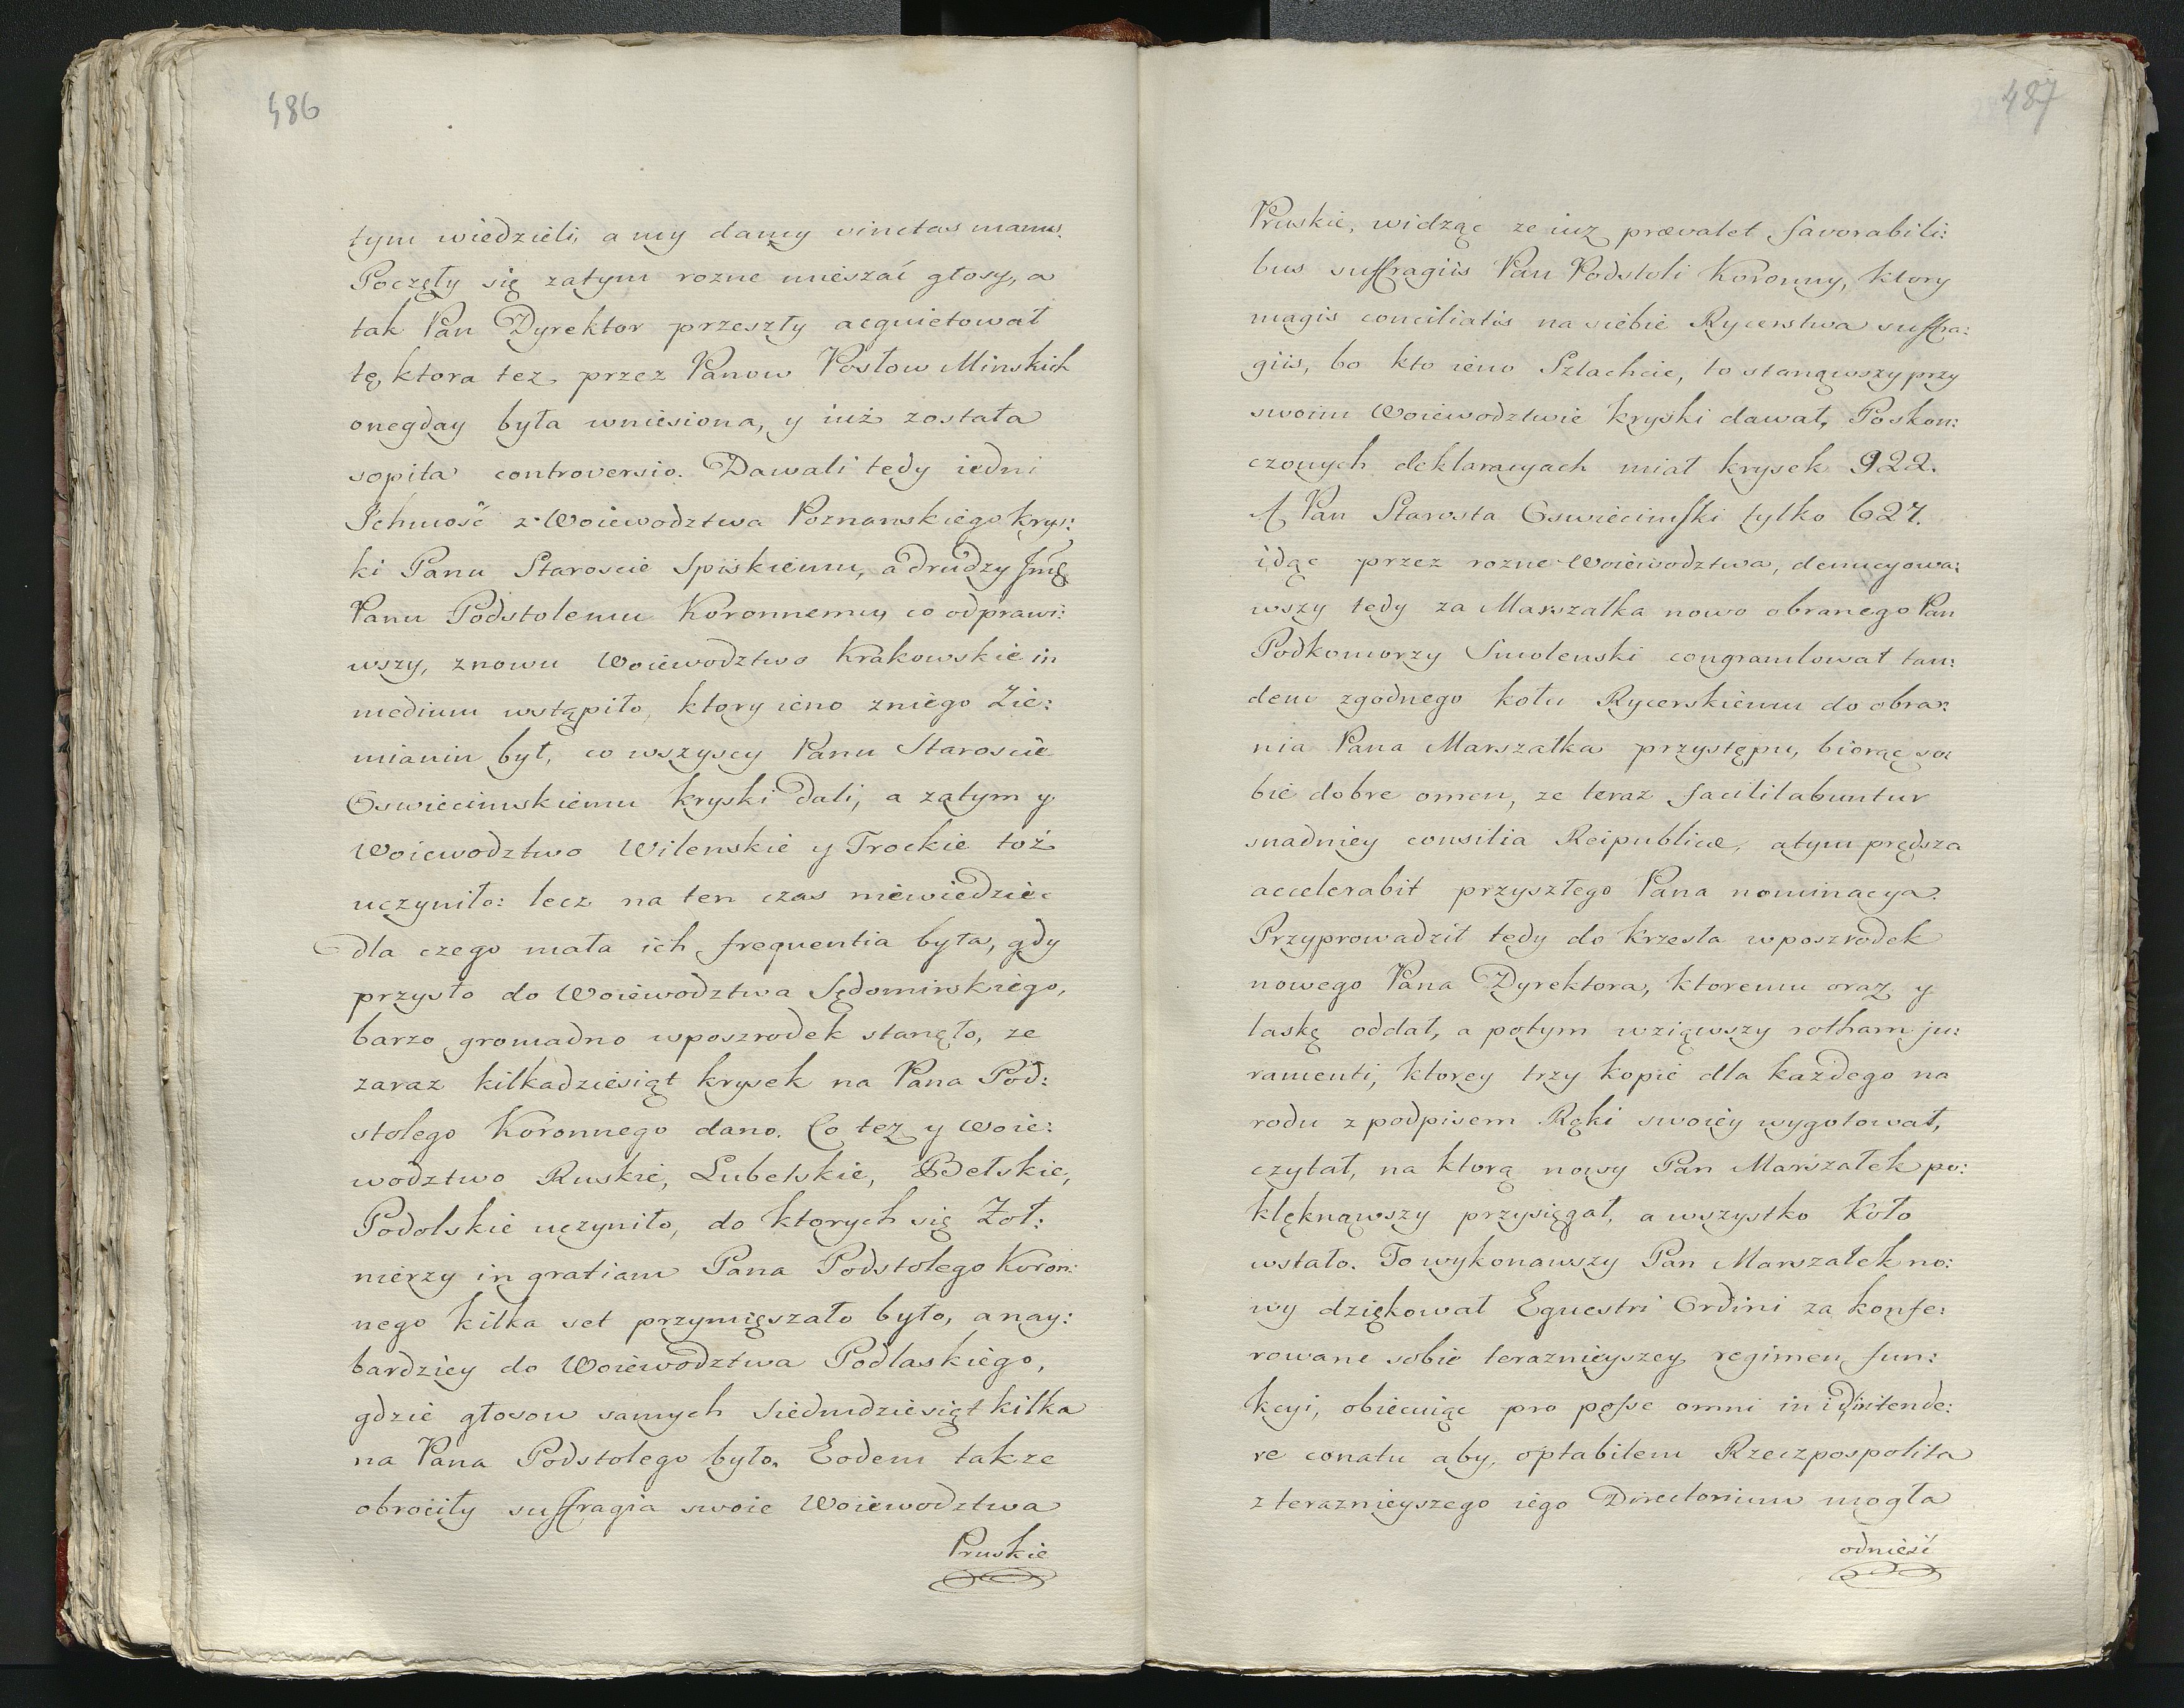 486
tym wiedzieli, a my damy vinctas manus.
Poczęły się zatym rozne mieszać głosy, a
tak Pan Dyrektor przeszły acquietował
tę, ktora tez przez Panow Posłow Minskich
onegday była wniesiona, y iuż została
sopita controversio. Dawali tedy iedni
Ichmość z Woiewodztwa Poznanskiego krys:
ki Panu Staroscie Spiskiemu, a drudzy Jmę
Panu Podstolemu Koronnemu, co odprawi:
wszy, znowu Woiewodztwo Krakowskie in
medium wstąpiło, ktory ieno zniego Zie:
mianin był, co wszyscy Panu Staroscie
Oswiecimskiemu kryski dali, a zatym y
Woiewodztwo Wilenskie y Trockie toż
uczyniło: lecz na ten czas niewiedziec
dla czego mała ich frequentia była, gdy
przysło do Woiewodztwa Sędomirskiego,
barzo gromadno wposzrodek stanęło, ze
zaraz kilkadziesiąt krysek na Pana Pod:
stolego Koronnego dano. Co tez y Woie:
wodztwo Ruskie, Lubelskie, Bełskie,
Podolskie uczyniło, do ktorych się Zoł:
nierzy in gratiam Pana Podstolego Koron:
nego kilka set przymięszało było, a nay:
bardziey do Woiewodztwa Podlaskiego,
gdzie głosow samych siedmdziesiąt kilka
na Pana Podstolego było. Eodem takze
obrociły suffragia swoie Woiewodztwa
Pruskie
487
Pruskie, widząc ze iuz prævalet favorabili:
bus suffragiis Pan Podstoli Koronny, ktory
magis conciliatis na siebie Rycerstwa suffra:
giis, bo kto ieno Szlachcic, to stanąwszy przy
swoim Woiewodztwie kryski dawał, Poskon:
czonych deklaracyach miał krysek 922.
A Pan Starosta Oswiecimski tylko 627.
idąc przez rozne Woiewodztwa, denucyowa:
wszy tedy za Marszałka nowo obranego Pan
Podkomorzy Smolenski congranlował tan:
dem zgodnego kołu Rycerskiemu do obra:
nia Pana Marszałka przystępu, biorąc so:
bie dobre omen, ze teraz facilitabuntur
snadniey consilia Reipublicæ, atym prędsza
accelerabit przyszłego Pana nominacya.
Przyprowadził tedy do krzesła wposzrodek
nowego Pana Dyrektora, ktoremu oraz y
laskę oddał, a potym wziąwszy rotham ju:
ramenti, ktorey trzy kopie dla każdego na
rodu z podpisem Ręki swoiey wygotował,
czytał, na ktorą nowy Pan Marszałek po:
klęknąwszy przysięgał, a wszystko Koło
wstało. To wykonawszy Pan Marszałek no:
wy dziękował Equestri Ordini za konfe:
rowane sobie teraznieyszey regimen fun:
kcyi, obiecuiąc pro posse omni in id intende:
re conatu aby, optabilem Rzeczpospolita
z teraznieyszego iego Directorium mogła
odnieść